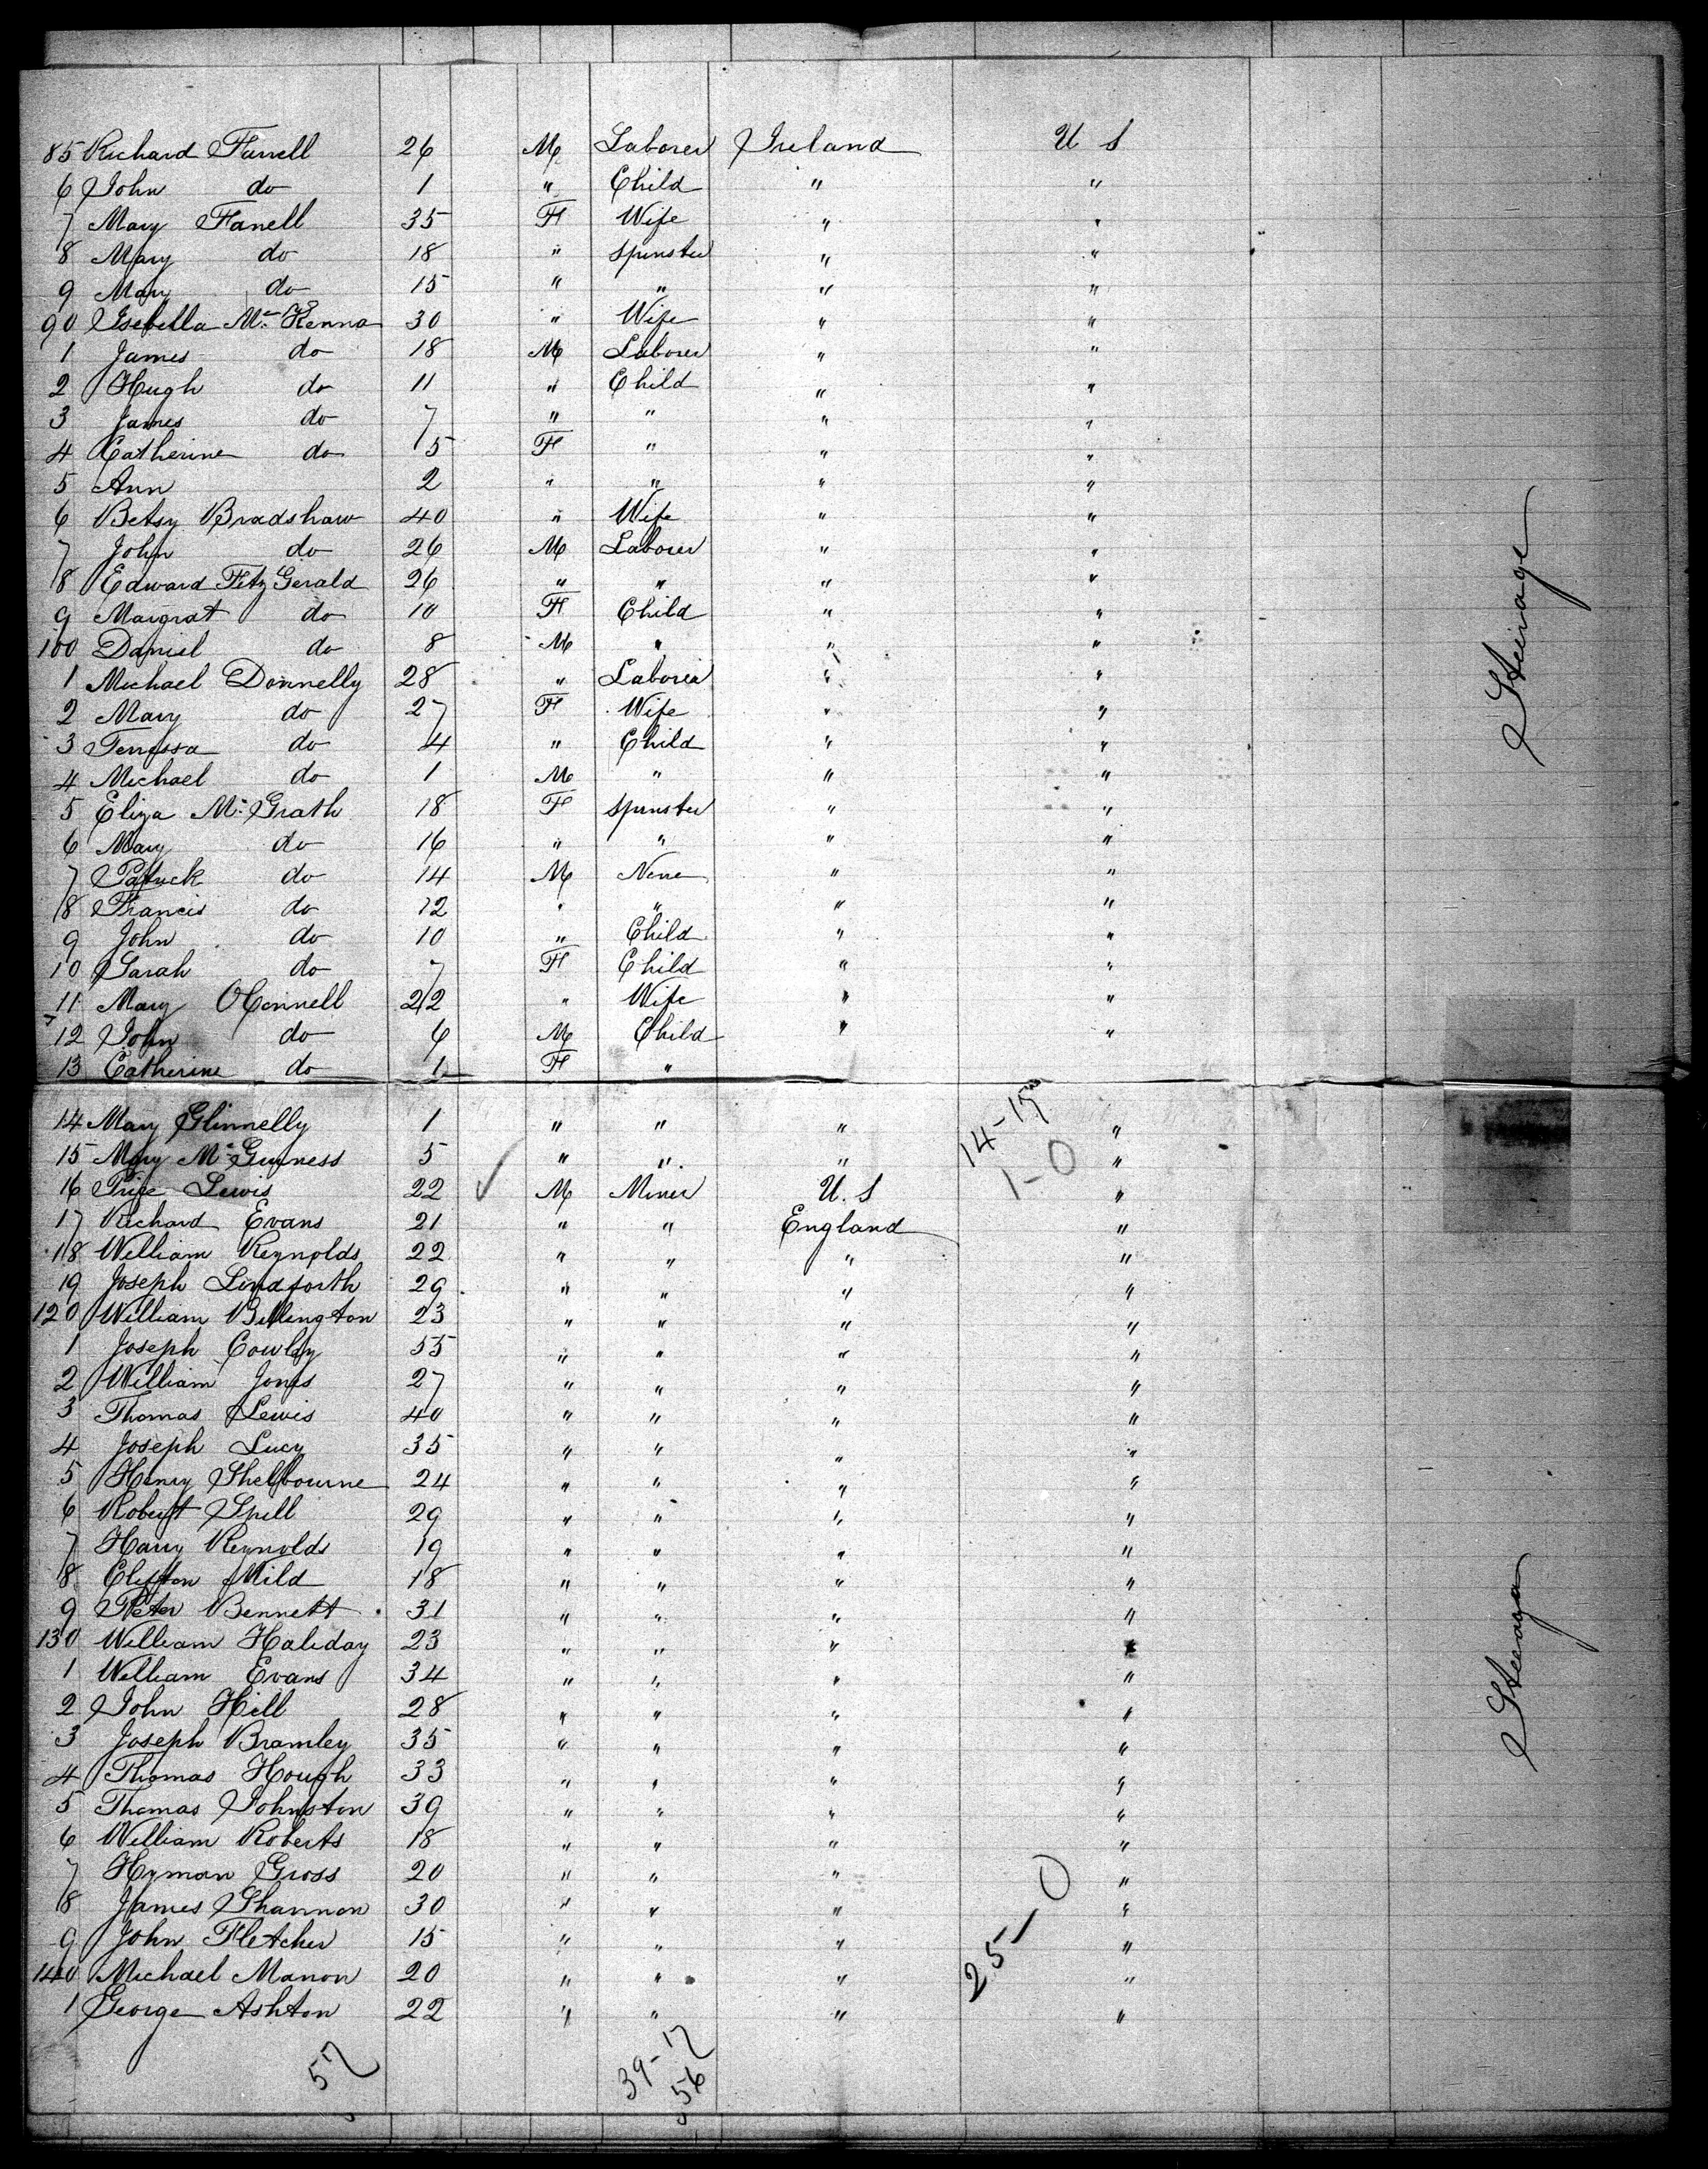 85 Richard Farrell 26 M Laborer Ireland U S
6 John do 1 " Child " "
7 Mary Farrell 35 F Wife " "
8 Mary do 18 " Spinster " "
9 Mary do 15 " " " "
90 Isebella Mc Kenna 30 " Wife " "
1 James do 18 M Laborer " "
2 Hugh do 11 " Child " "
3 James do 7 " " " "
4 Catherine do 5 F " " "
5 Ann 2 " " " "
6 Betsy Bradshaw 40 " Wife " "
7 John do 26 M Laborer " "
8 Edward Fitz Gerald 26 " " " "
9 Margrat do 10 F Child " "
100 Daniel do 8 M " " "
1 Michael Donnelly 28 " Laborer " "
2 Mary do 27 F Wife " "
3 Terressa do 4 " Child " "
4 Michael do 1 M " " "
5 Eliza Mc Grath 18 F Spinster " "
6 Mary do 16 " " " "
7 Patrick do 14 M None " "
8 Francis do 12 " " " "
9 John do 10 " Child " "
10 Sarah do 7 F Child " "
11 Mary OConnell 22 " Wife " "
12 John do 6 M Child " "
13 Catherine do 1 F "
Steerage
14 Mary Glinnelly 1 " " " "
14-17
15 Mary Mc Guiness 5 " " " "
1-0
16 Lewis 22 ✓ M Miner U.S "
17 Richard Evans 21 " " England "
18 William Reynolds 22 " " " "
19 Joseph Lindforth 29 " " " "
120 William Billington 23 " " " "
1 Joseph Cowley 55 " " " "
2 William Jones 27 " " " "
3 Thomas Lewis 40 " " " "
4 Joseph Lucy 35 " " " "
5 Henry Shelbourne 24 " " " "
6 Robert Spill 29 " " " "
7 Harry Reynolds 19 " " " "
8 Clifton Mild 18 " " " "
9 Peter Bennett 31 " " " "
130 William Haliday 23 " " " "
1 William Evans 34 " " " "
2 John Hill 28 " " " "
3 Joseph Bramley 35 " " " "
4 Thomas Hough 33 " " " "
5 Thomas Johnston 39 " " " "
6 William Roberts 18 " " " "
7 Hyman Gross 20 " " " "
8 James Shannon 30 " " " "
9 John Fletcher 15 " " " "
140 Michael Manon 20 " " " "
1 George Ashton 22 " " " "
25-0
Steerage
57
39-17
56